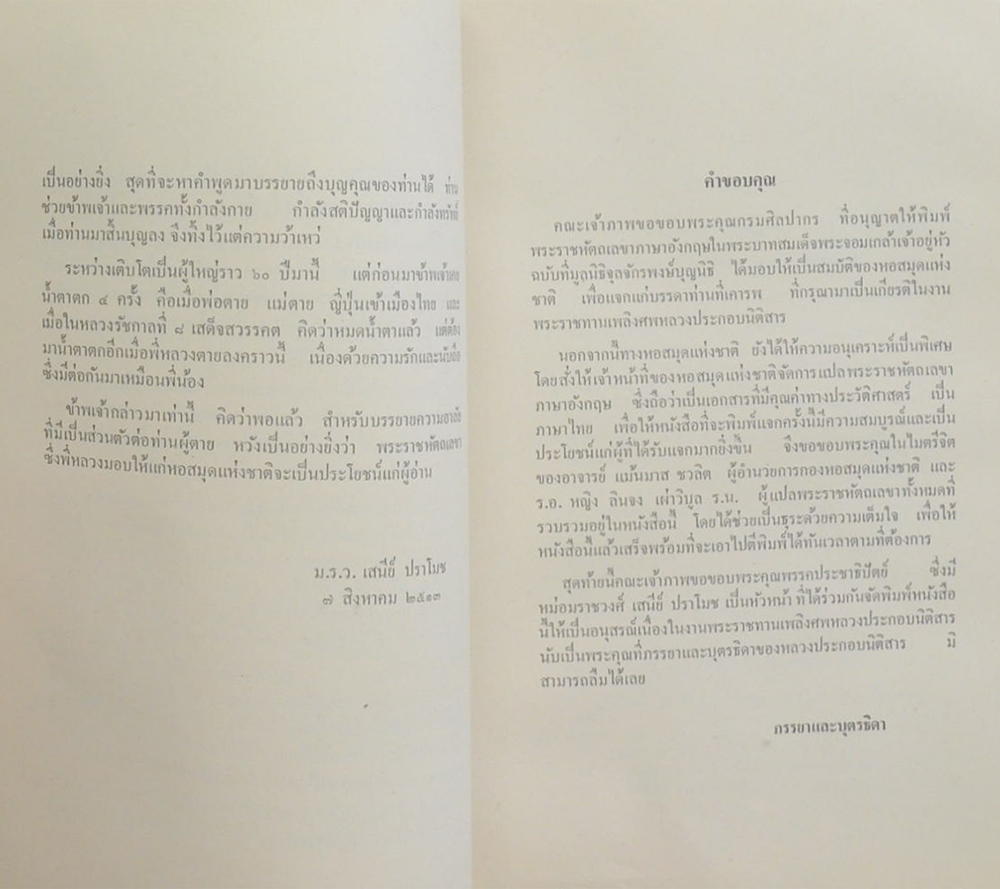 เป็นอย่างยิ่ง สุดที่จะหาคำพูดมาบรรยายถึงบุญคุณของท่านได้ ท่าน
ช่วยข้าพเจ้าและพรรคทั้งกำลังกาย กำลังสติปัญญาและกำลังทรัพย์
เมื่อท่านมาสิ้นบุญลง จึงทิ้งไว้แต่ความว้าเหว่
ระหว่างเติบโตเป็นผู้ใหญ่ราว ๖๐ ปีมานี้ แต่ก่อนมาข้าพเจ้าเคย
น้ำตาตก ๔ ครั้ง คือเมื่อพ่อตาย แม่ตาย ญี่ปุ่นเข้าเมืองไทย และ
เมื่อในหลวงรัชกาลที่ ๘ เสด็จสวรรคต คิดว่าหมดน้ำตาแล้ว แต่ต้อง
มาน้ำตาตกอีกเมื่อพี่หลวงตายลงคราวนี้ เนื่องด้วยความรักและนับถือ
ซึ่งมีต่อกันมาเหมือนพี่น้อง
ข้าพเจ้ากล่าวมาเท่านี้ คิดว่าพอแล้ว สำหรับบรรยายความอาลัย
ที่มีเป็นส่วนตัวต่อท่านผู้ตาย หวังเป็นอย่างยิ่งว่า พระราชหัตถเลขา
ซึ่งพี่หลวงมอบให้แก่หอสมุดแห่งชาติจะเป็นประโยชน์แก่ผู้อ่าน
ม.ร.ว. เสนีย์ ปราโมช
๗ สิงหาคม ๒๕๑๓
คำขอบคุณ
คณะเจ้าภาพขอขอบพระคุณกรมศิลปากร ที่อนุญาตให้พิมพ์
พระราชหัตถเลขาภาษาอังกฤษในพระบาทสมเด็จพระจอมเกล้าเจ้าอยู่หัว
ฉบับที่มูลนิธิจุลจักรพงษ์บุญนิธิ ได้มอบให้เป็นสมบัติของหอสมุดแห่ง
ชาติ เพื่อแจกแก่บรรดาท่านที่เคารพ ที่กรุณามาเป็นเกียรติในงาน
พระราชทานเพลิงศพหลวงประกอบนิติสาร
นอกจากนี้ทางหอสมุดแห่งชาติ ยังได้ให้ความอนุเคราะห์เป็นพิเศษ
โดยสั่งให้เจ้าหน้าที่ของหอสมุดแห่งชาติจัดการแปลพระราชหัตถเลขา
ภาษาอังกฤษ ซึ่งถือว่าเป็นเอกสารที่มีคุณค่าทางประวัติศาสตร์ เป็น
ภาษาไทย เพื่อให้หนังสือที่จะพิมพ์แจกครั้งนี้มีความสมบูรณ์และเป็น
ประโยชน์แก่ผู้ที่ได้รับแจกมากยิ่งขึ้น จึงขอขอบพระคุณในไมตรีจิต
ของอาจารย์ แม้นมาส ชวลิต ผู้อำนวยการกองหอสมุดแห่งชาติ และ
ร.อ. หญิง ลินจง เผ่าวิบูล ร.น. ผู้แปลพระราชหัตถเลขาทั้งหมดที่
รวบรวมอยู่ในหนังสือนี้ โดยได้ช่วยเป็นธุระด้วยความเต็มใจ เพื่อให้
หนังสือนี้แล้วเสร็จพร้อมที่จะเอาไปตีพิมพ์ได้ทันเวลาตามที่ต้องการ
สุดท้ายนี้คณะเจ้าภาพขอขอบพระคุณพรรคประชาธิปัตย์ ซึ่งมี
หม่อมราชวงศ์ เสนีย์ ปราโมช เป็นหัวหน้า ที่ได้ร่วมกันจัดพิมพ์หนังสือ
นี้ให้เป็นอนุสรณ์เนื่องในงานพระราชทานเพลิงศพหลวงประกอบนิติสาร
นับเป็นพระคุณที่ภรรยาและบุตรธิดาของหลวงประกอบนิติสาร มิ
สามารถลืมได้เลย
ภรรยาและบุตรธิดา